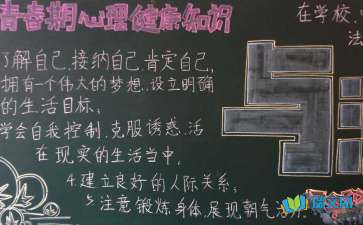 青春期心理健康知识
在学校
法
了解自己、接纳自己、肯定自己,
拥有一个伟大的梦想、设立明确
的生活目标;
学会自我控制、克服诱惑、活
在现实的生活当中,
4.建立良好的人际关系;
5.注意锻炼身体、展现朝气活